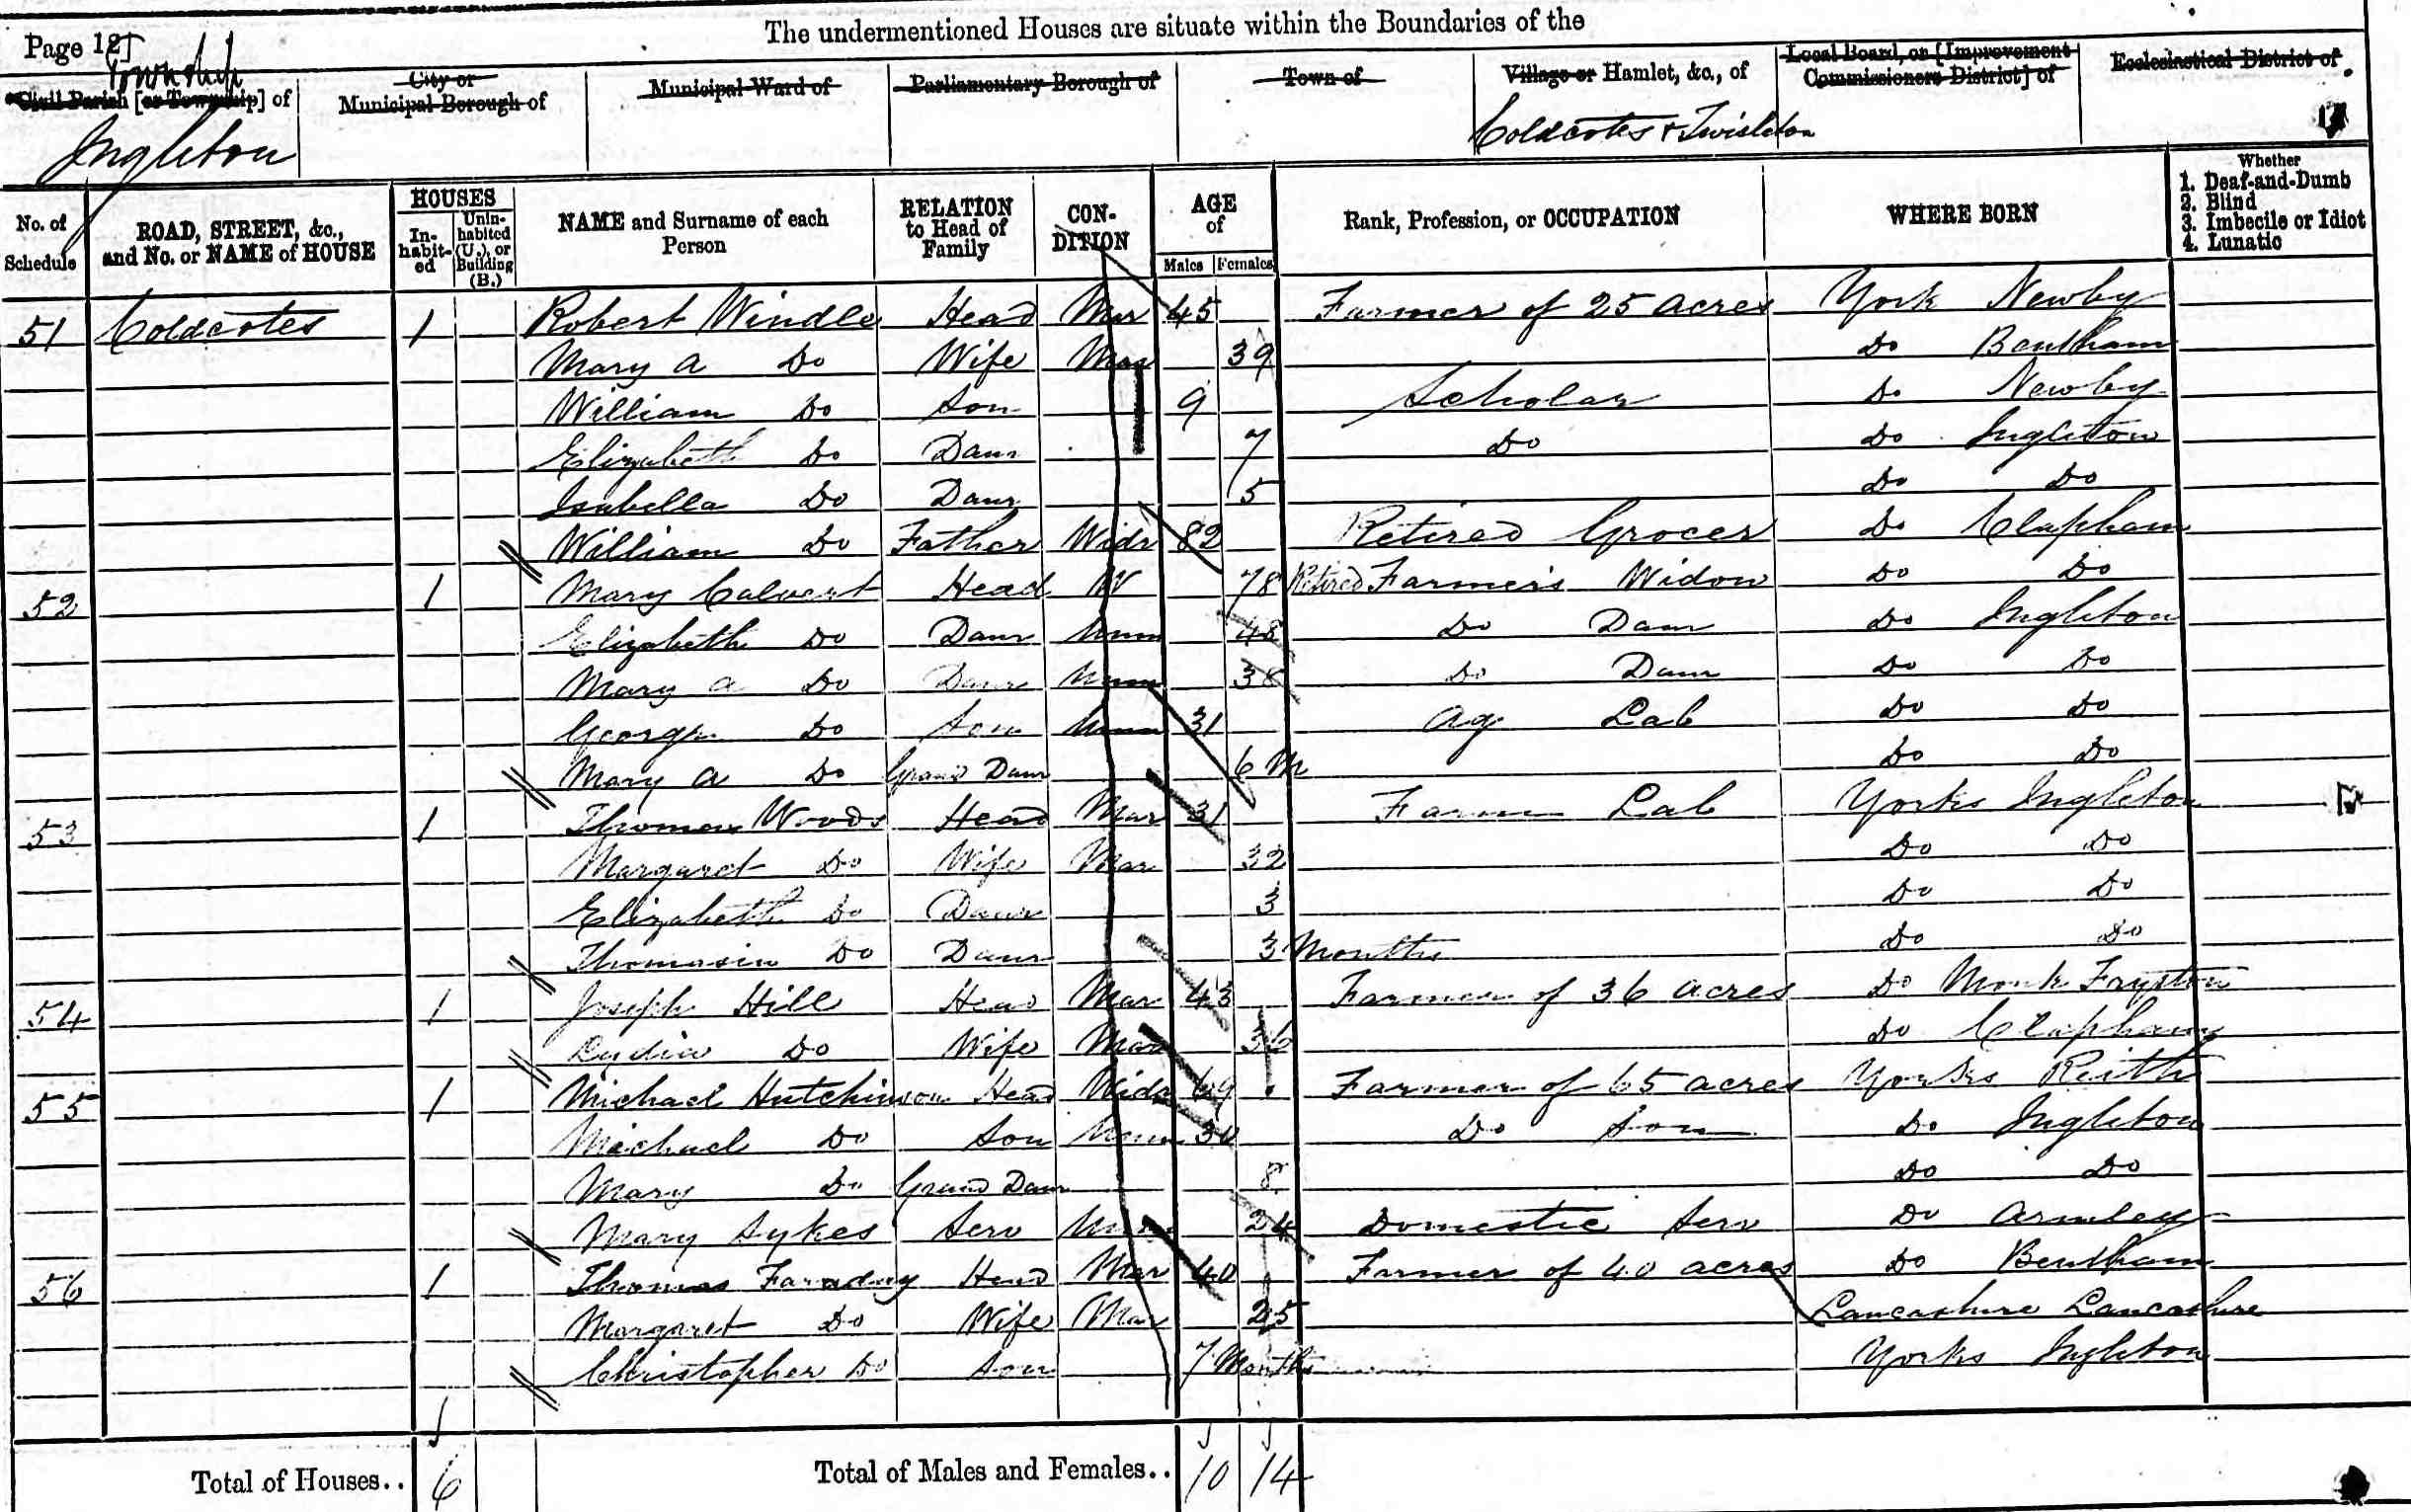 The undermentioned Houses are situate within the Boundaries of the
Page 12]
Township
Civil Parish [or Township] of
City or Municipal Borough of
Municipal Ward of
Parliamentary Borough of
Town of
Village or Hamlet, &c., of
Local Board, or [Improvement Commissioners District] of
Ecclesiastical District of
Ingleton
Coldcotes & Twisleton
No. of Schedule
ROAD, STREET, &c., and No. or NAME of HOUSE
HOUSES
Inhabited
Uninhabited (U.), or Building (B.)
NAME and Surname of each Person
RELATION to Head of Family
CONDITION
AGE of
Males Females
Rank, Profession, or OCCUPATION
WHERE BORN
Whether
1. Deaf-and-Dumb
2. Blind
3. Imbecile or Idiot
4. Lunatic
51 Coldcotes 1 Robert Windle Head Mar 45 Farmer of 25 acres York Newby
Mary A Do Wife Mar 39 Do Bentham
William Do Son 9 Scholar Do Newby
Elizabeth Do Daur 7 Do Do Ingleton
Isabella Do Daur 5 Do Do
William Do Father Widr 82 Retired Grocer Do Clapham
52 1 Mary Calvert Head W 78 Retired Farmer's Widow Do Do
Elizabeth Do Daur Unm 48 Do Daur Do Ingleton
Mary A Do Daur Unm 38 Do Daur Do Do
George Do Son Unm 31 Ag Lab Do Do
Mary A Do Grand Daur 6 M Do Do
53 1 Thomas Woods Head Mar 31 Farm Lab Yorks Ingleton
Margaret Do Wife Mar 32 Do Do
Elizabeth Do Daur 3 Do Do
Thomasin Do Daur 3 Months Do Do
54 1 Joseph Hill Head Mar 43 Farmer of 36 acres Do Monk Fryston
Lydia Do Wife Mar 36 Do Clapham
55 1 Michael Hutchinson Head Widr 69 Farmer of 65 acres Yorks Reith
Michael Do Son Unm 30 Do Son Do Ingleton
Mary Do Grand Daur 8 Do Do
Mary Sykes Serv Unm 24 Domestic Serv Do Armley
56 1 Thomas Faraday Head Mar 40 Farmer of 40 acres Do Bentham
Margaret Do Wife Mar 25 Lancashire Lancashire
Christopher Do Son 7 Months Yorks Ingleton
Total of Houses.. 6
Total of Males and Females.. 10 14